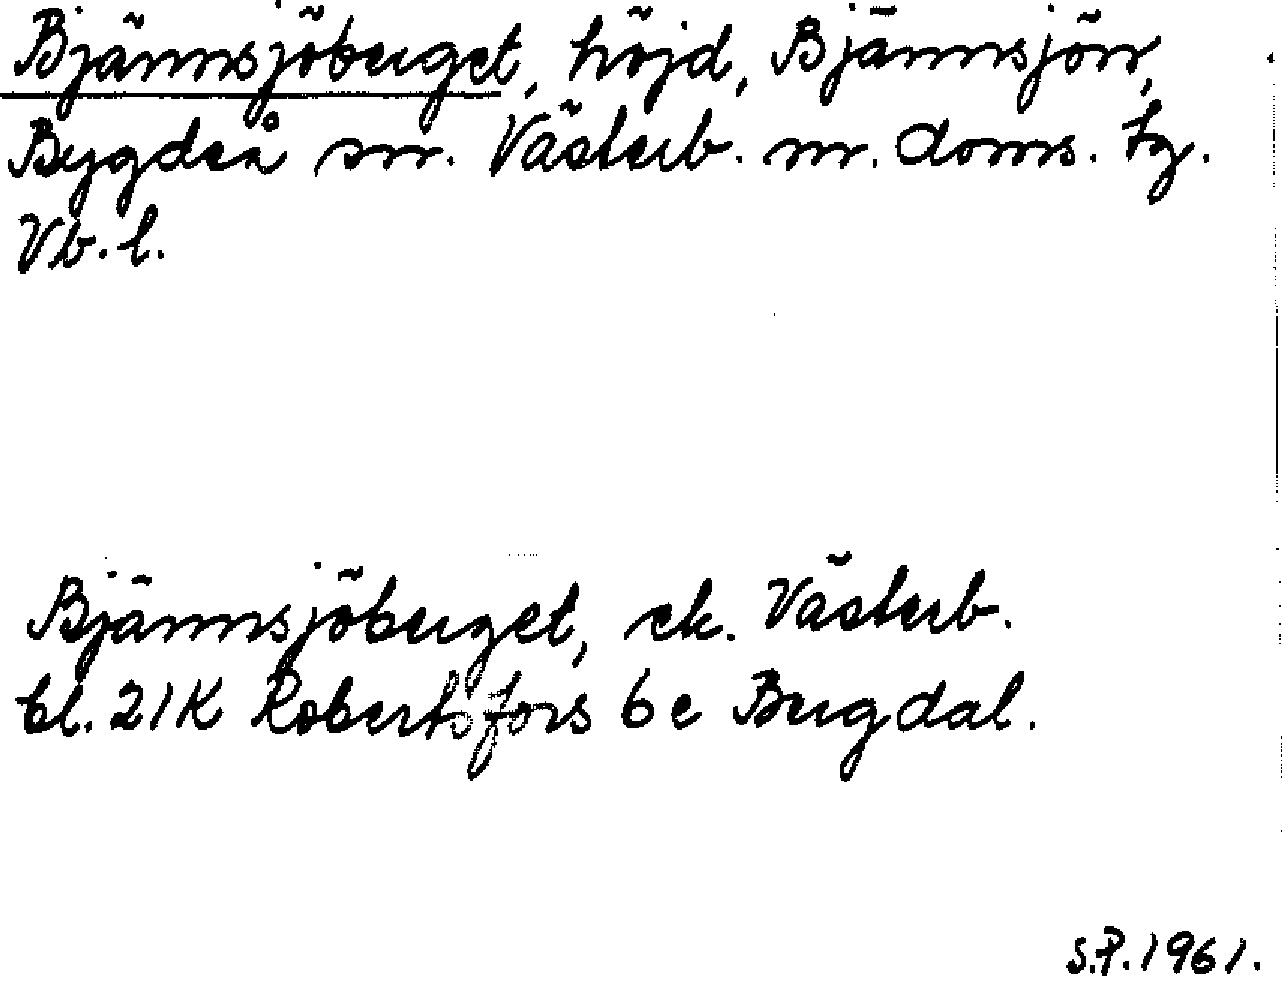 Bjännsjöberget, höjd, Bjännsjön,
Bygdeå sn. Västerb. n. doms. tg.
Vb. l.
Bjännsjöberget, ek. Västerb.
bl. 21K Robertsfors 6e Bergdal.
S.P. 1961.